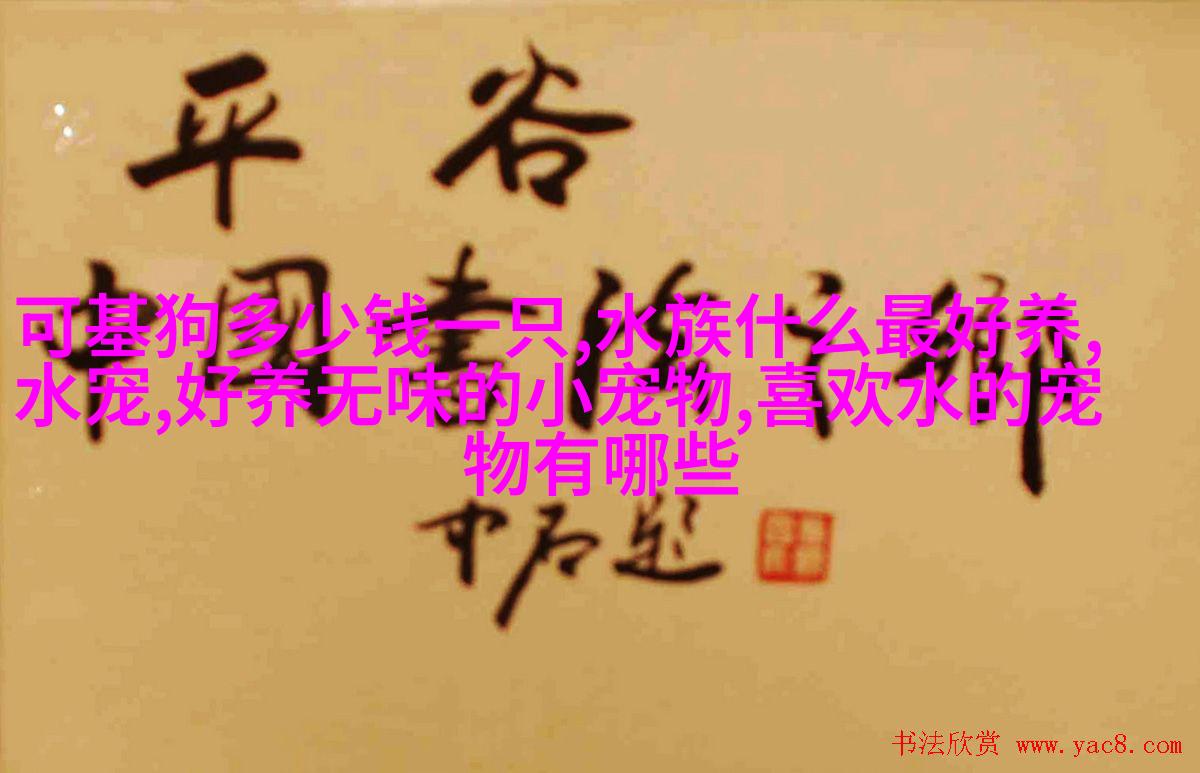 平谷
中國書法之鄉
可基狗多少钱一只,水族什么最好养,
水宠,好养无味的小宠物,喜欢水的宠
物有哪些
中石题
书法欣赏 www.yac8.com